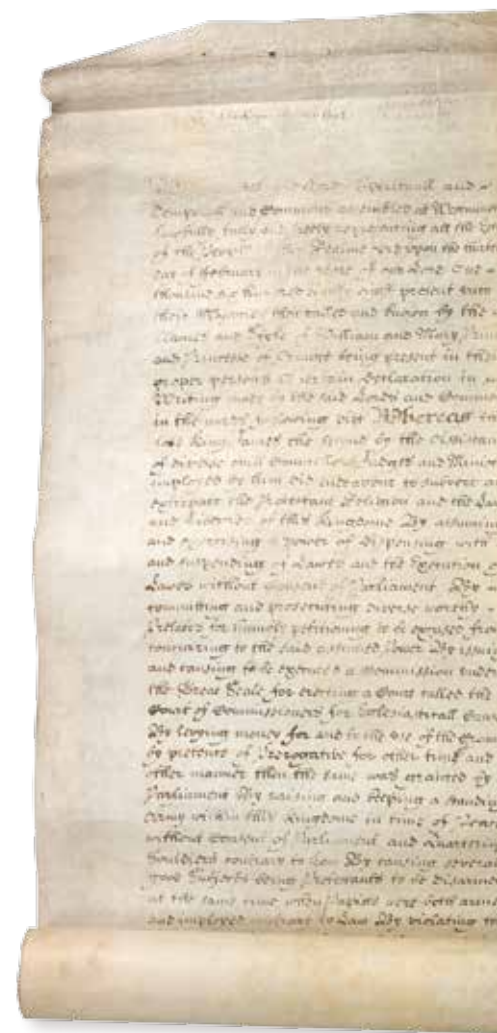 Lords Spirituall and
Temporall and Commons assembled at Westmin
lawfully fully and freely representing all the
of the People of this Realme did upon the thirte
day of February in the yeare of our Lord One
thousand six hundred eighty eight present unto
their Majesties then called and known by the
Names and Stile of William and Mary Prin
and Princesse of Orange being present in their
proper persons a certain Declaration in
Writing made by the said Lords and Commo
in the words following viz Whereas the
late King James the second by the assistan
of diverse evill Councillors Judges and Minis
imployed by him did endeavour to subvert an
extirpate the Protestant Religion and the La
and Liberties of this Kingdome By assuming
and exercising a power of dispensing with
and suspending of Lawes and the Execution of
Lawes without Consent of Parliament By
committing and prosecuting diverse worthy
Prelates for humbly petitioning to be excused from
concurring to the said assumed Power By issuing
and causing to be executed a Commission under
the Great Seale for erecting a Court called the
Court of Commissioners for Ecclesiasticall Caus
By levying money for and to the use of the Crown
by pretence of Prerogative for other time and
other manner then the same was granted by
Parliament By raising and keeping a standing
Army within this Kingdome in time of Peace
without Consent of Parliament and Quartering
Souldiers contrary to Law By causing several
good Subjects being Protestants to be disarmed
at the same time when Papists were both arme
and imployed contrary to Law By violating the